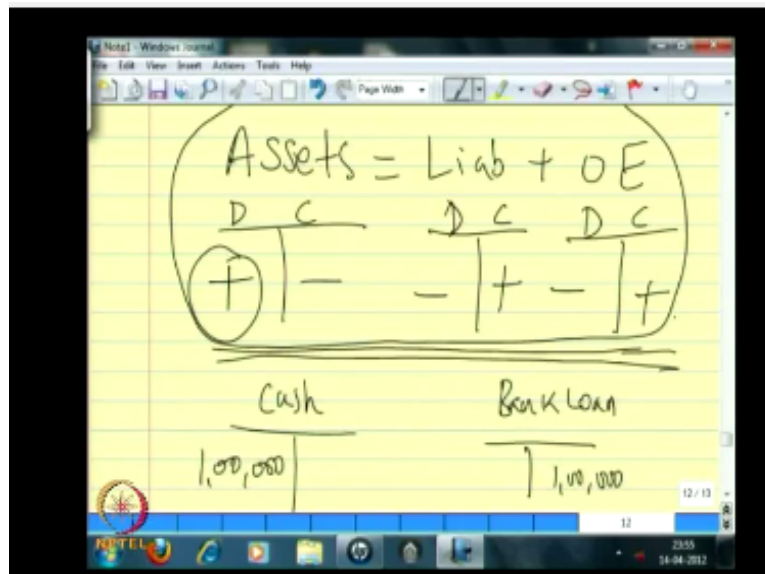 Note1 - Windows Journal
File Edit View Insert Actions Tools Help
Page Width
Assets = Liab + OE
D C D C D C
+ - - + - +
Cash Bank Loan
1,00,000 1,00,000
12 / 13
12
NPTEL
23:55
14-04-2012